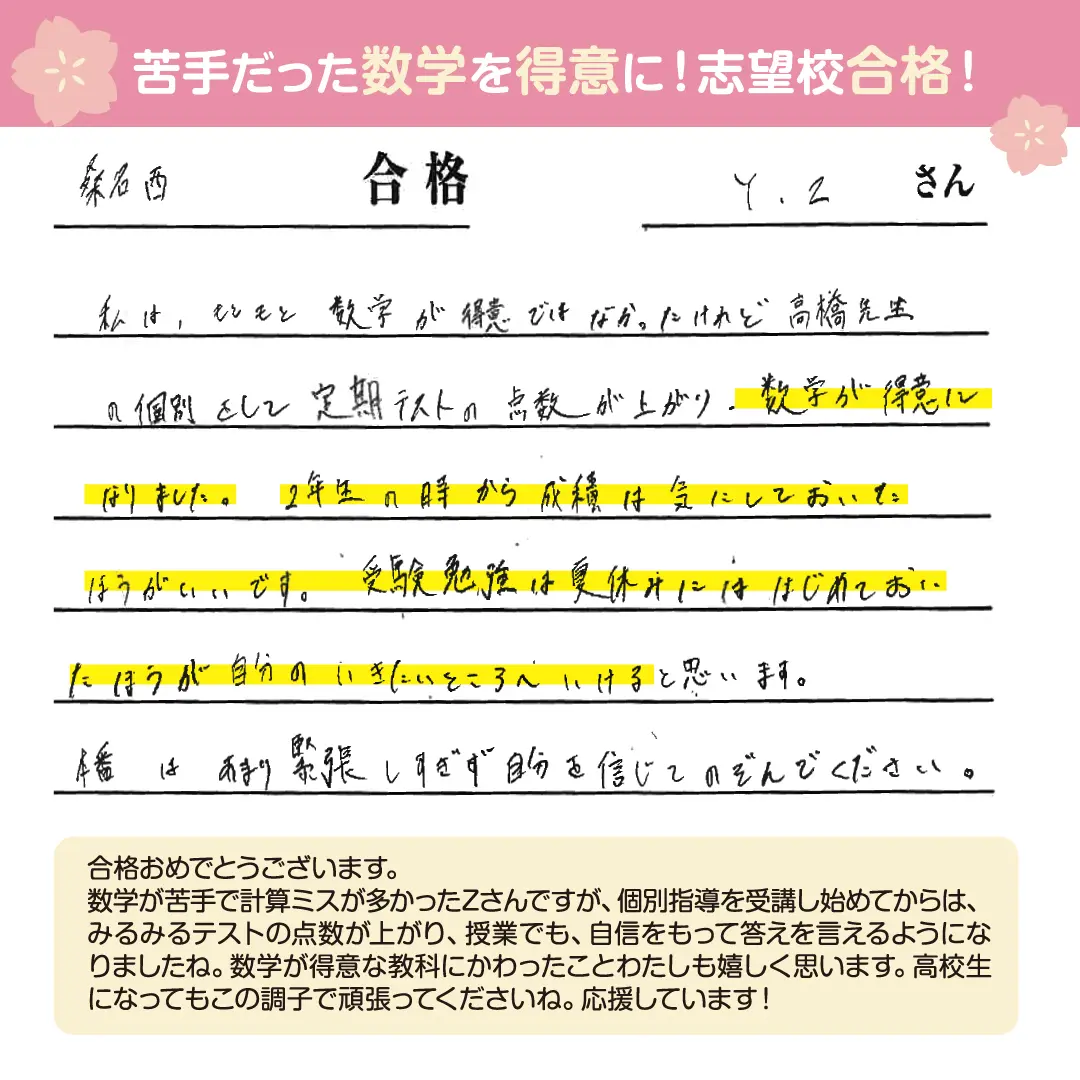 苦手だった数学を得意に！志望校合格！
桑名西 合格 Y.Z さん
私は,もともと数学が得意ではなかったけれど高橋先生
の個別をして定期テストの点数が上がり.数学が得意に
なりました。2年生の時から成績は気にしておいた
ほうがいいです。受験勉強は夏休みにははじめておい
たほうが自分のいきたいところへいけると思います。
本番はあまり緊張しすぎず自分を信じてのぞんでください。
合格おめでとうございます。
数学が苦手で計算ミスが多かったZさんですが、個別指導を受講し始めてからは、
みるみるテストの点数が上がり、授業でも、自信をもって答えを言えるようにな
りましたね。数学が得意な教科にかわったことわたしも嬉しく思います。高校生
になってもこの調子で頑張ってくださいね。応援しています！